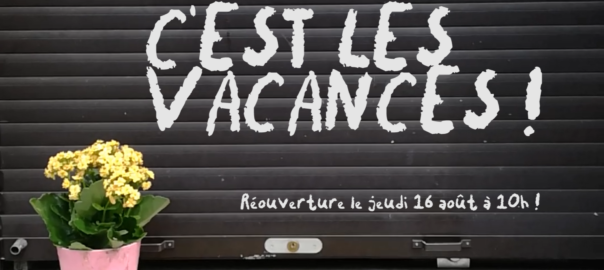 C'EST LES
VACANCES !
Réouverture le jeudi 16 août à 10h !